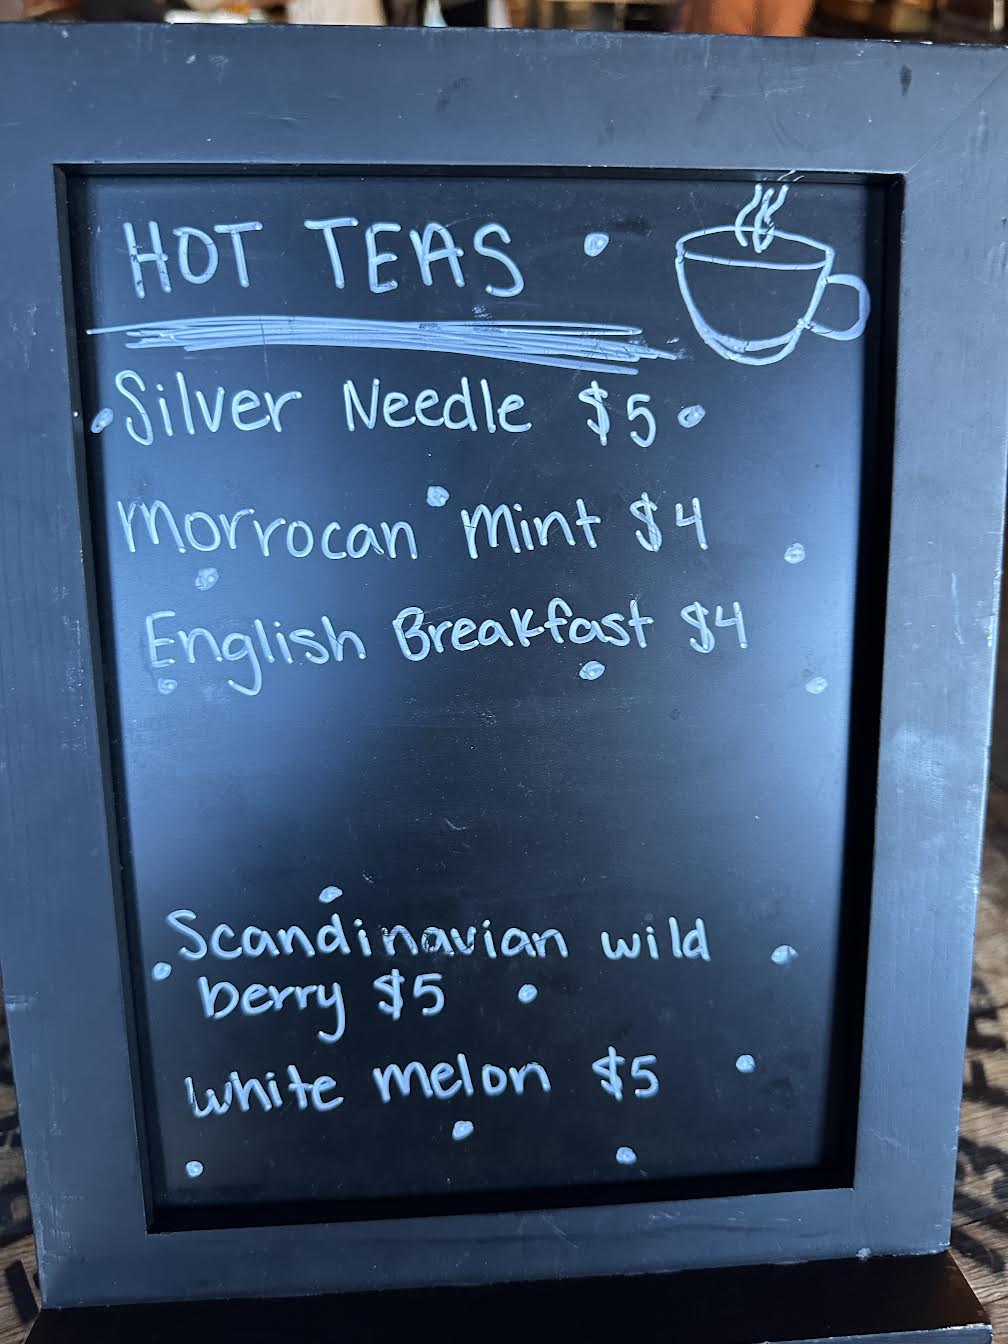 HOT TEAS
Silver Needle $5
Morrocan Mint $4
English Breakfast $4
Scandinavian wild
berry $5
White melon $5